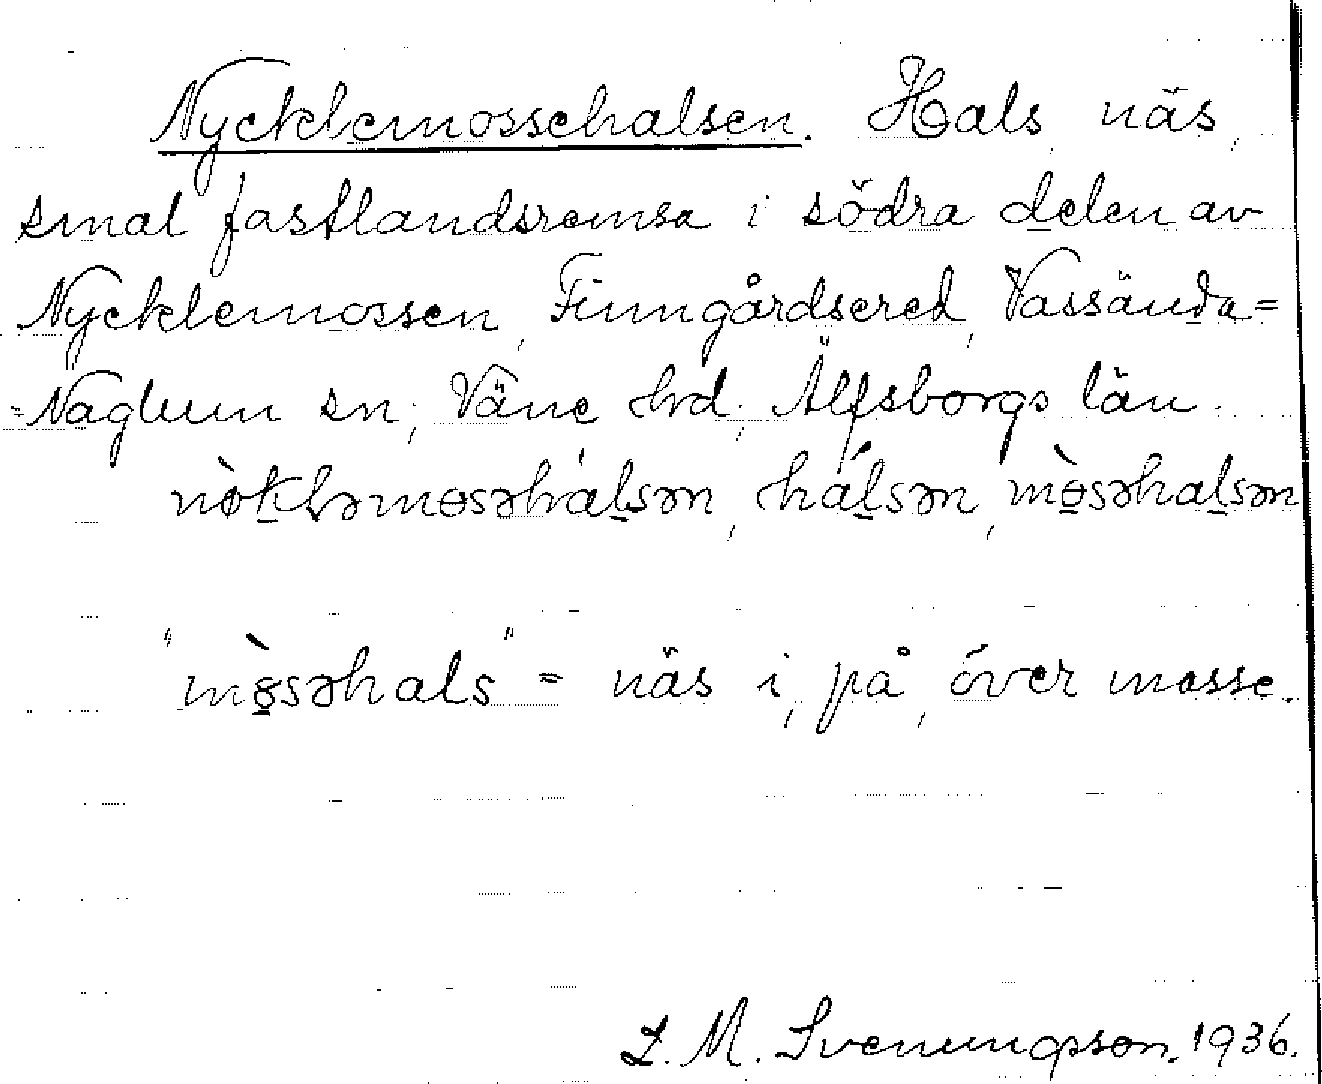 Nycklemossehalsen. Hals, näs,
smal fastlandsremsa i södra delen av
Nycklemossen, Finngårdsered, Vassända=
=Naglum sn; Väne hd; Älfsborgs län.
nòkləmɵsəhálsən, hálsən, mɵ̀səhalsən
"mɵ̀səhals" = näs i, på, över mosse.
L. M. Svenungsson. 1936.